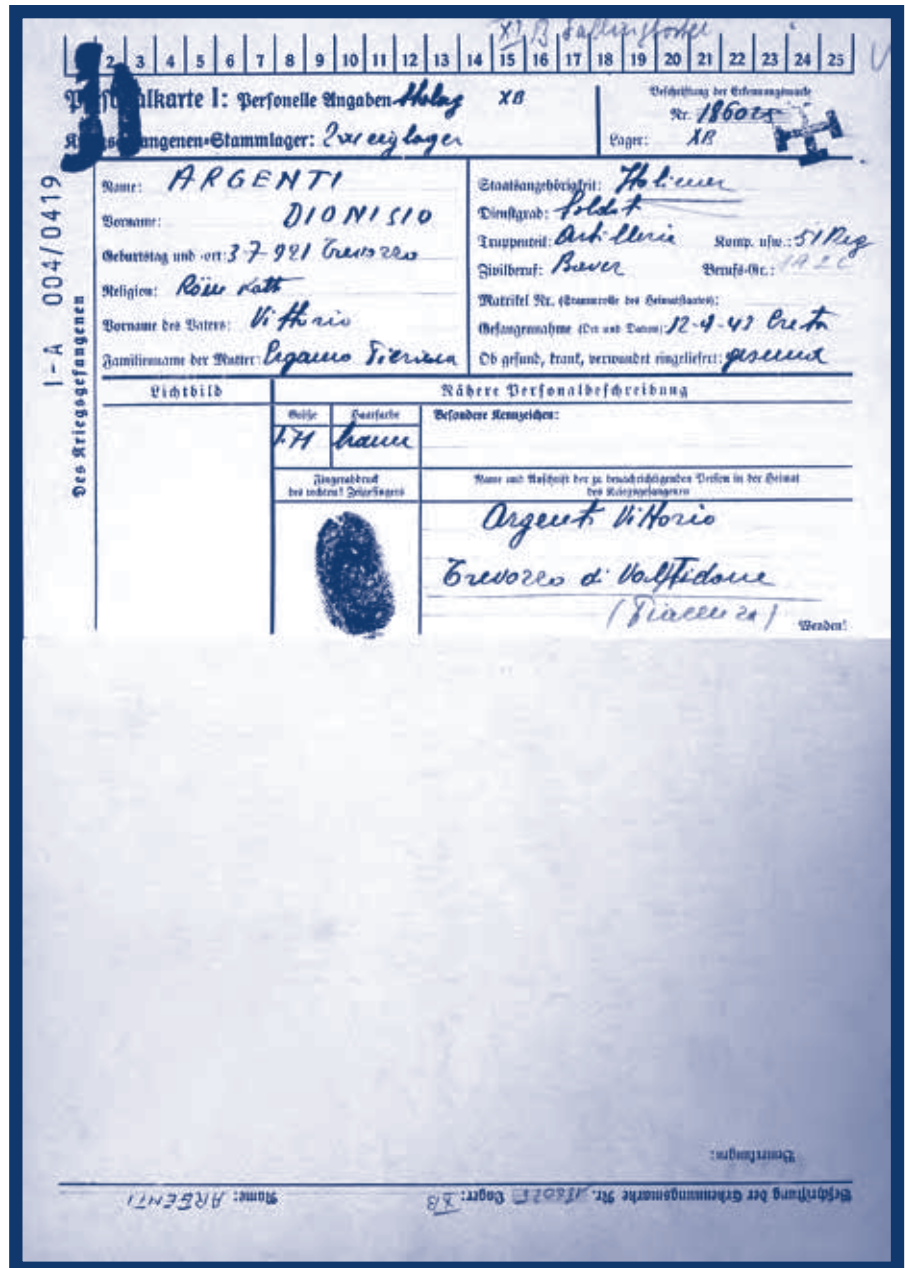 XI B Fallingbostel
2 3 4 5 6 7 8 9 10 11 12 13 14 15 16 17 18 19 20 21 22 23 24 25
Personalkarte I: Personelle Angaben Stalag XB
Beschriftung der Erkennungsmarke
Nr. 186025
Kriegsgefangenen-Stammlager: Zweiglager
Lager: XB
I-A 004/0419
Des Kriegsgefangenen
Name: ARGENTI
Vorname: DIONISIO
Geburtstag und -ort: 3-7-921 Trevozzo
Religion: Röm Kath
Vorname des Vaters: Vittorio
Familienname der Mutter:
Staatsangehörigkeit: Italiener
Dienstgrad: Soldat
Truppenteil: Artillerie Komp. usw.: 51 Reg
Zivilberuf: Bauer Berufs-Gr.:
Matrikel Nr. (Stammrolle des Heimatstaates):
Gefangennahme (Ort und Datum): 12-9-43 Creta
Ob gesund, krank, verwundet eingeliefert: gesund
Lichtbild
Nähere Personalbeschreibung
Größe Haarfarbe Besondere Kennzeichen:
1.71 braun
Fingerabdruck
des rechten! Zeigefingers
Name und Anschrift der zu benachrichtigenden Person in der Heimat
des Kriegsgefangenen
Argenti Vittorio
Trevozzo di Valtidone
(Piacenza)
Wenden!
Bemerkungen:
Beschriftung der Erkennungsmarke Nr. 186025 Lager: XB Name: ARGENTI